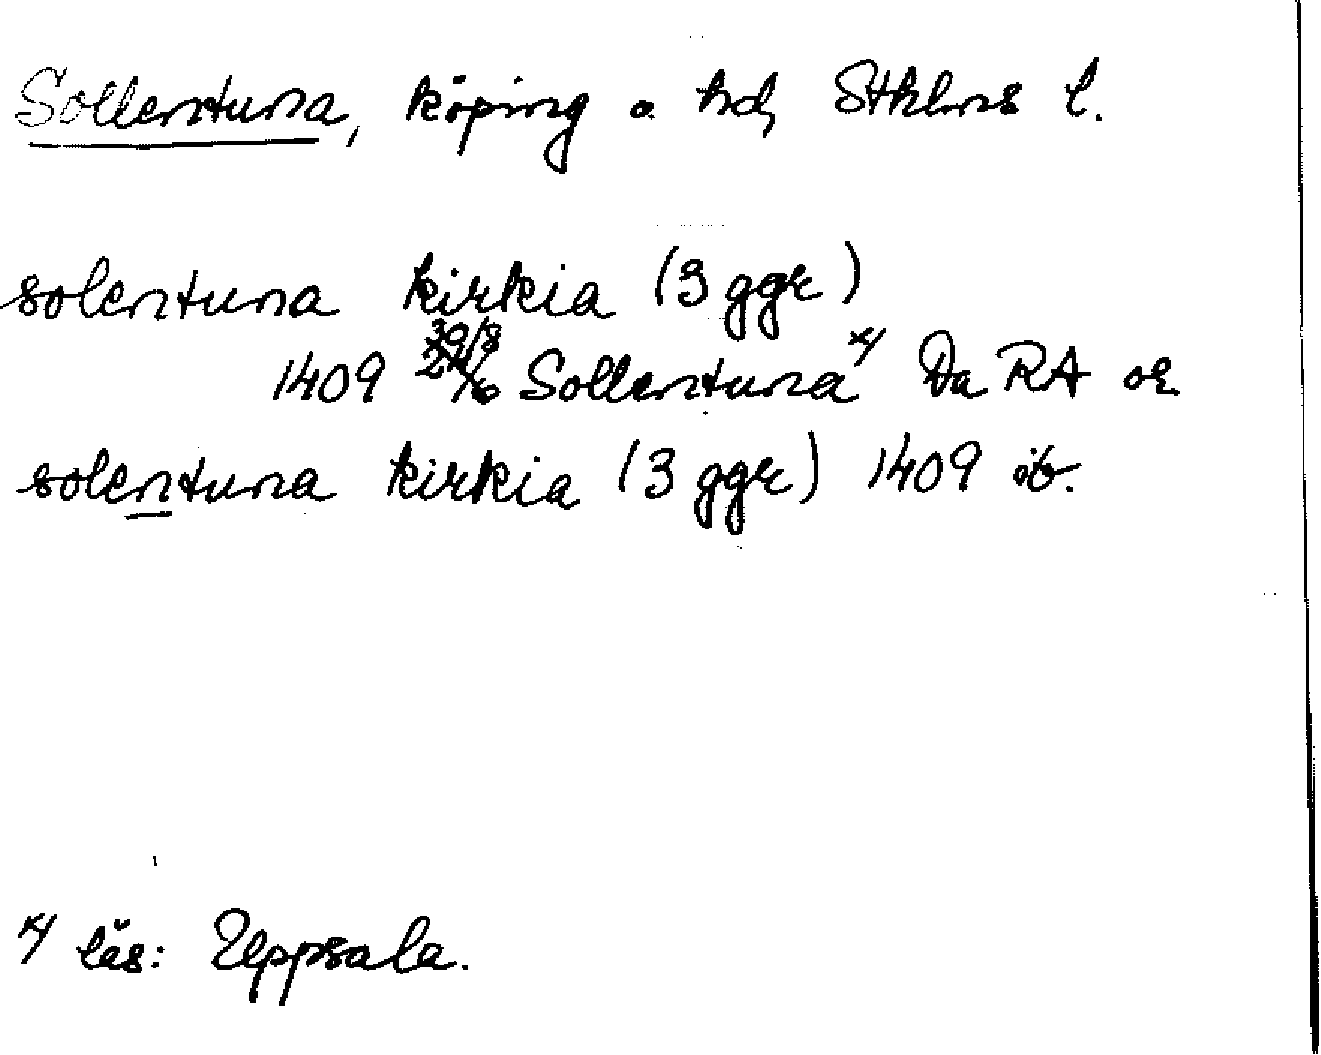 Sollentuna, köping o. hd, Sthlms l.
solentuna kirkia (3 ggr)
30/8
1409 24/6 Sollentuna x/ Da RA or
solentuna kirkia (3 ggr) 1409 ib.
x/ läs: Uppsala.